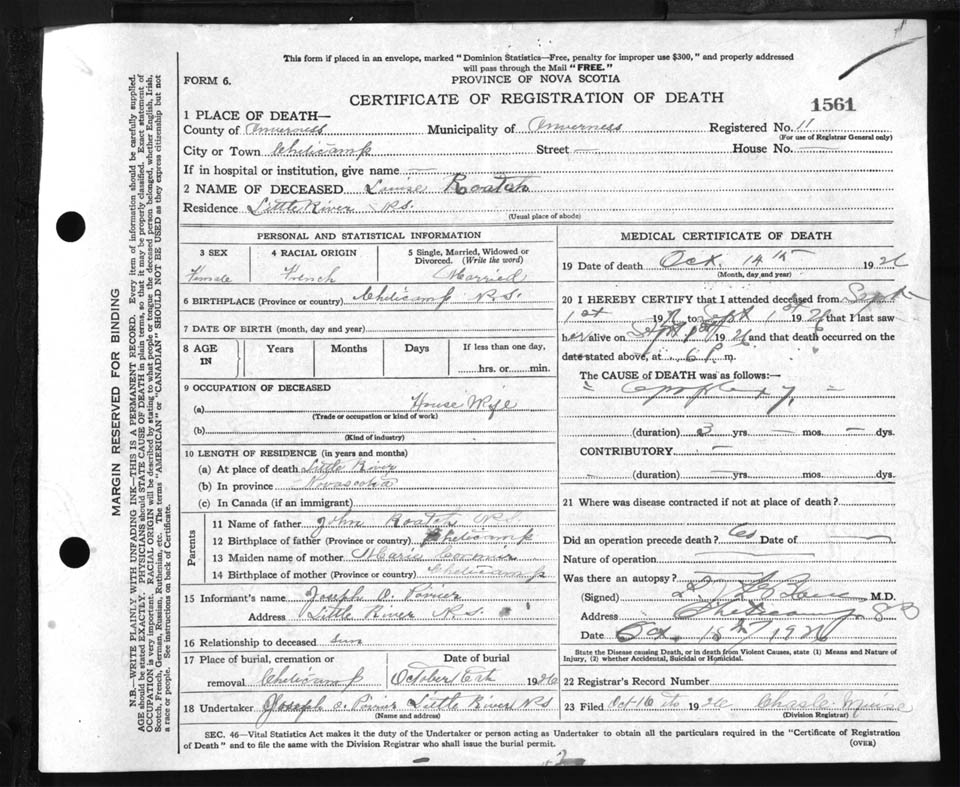 This form if placed in an envelope, marked "Dominion Statistics—Free, penalty for improper use $300," and properly addressed
will pass through the Mail "FREE."
FORM 6.
PROVINCE OF NOVA SCOTIA
CERTIFICATE OF REGISTRATION OF DEATH
1561
1 PLACE OF DEATH—
County of Inverness Municipality of Inverness Registered No. 11
(For use of Registrar General only)
City or Town Cheticamp Street — House No. —
If in hospital or institution, give name —
2 NAME OF DECEASED Louise Roatch
Residence Little River N.S.
(Usual place of abode)
PERSONAL AND STATISTICAL INFORMATION
3 SEX 4 RACIAL ORIGIN 5 Single, Married, Widowed or
Divorced. (Write the word)
Female French Married
6 BIRTHPLACE (Province or country) Cheticamp N.S.
7 DATE OF BIRTH (month, day and year)
8 AGE IN Years Months Days If less than one day,
hrs. or min.
9 OCCUPATION OF DECEASED
(a) House Wife
(Trade or occupation or kind of work)
(b)
(Kind of industry)
10 LENGTH OF RESIDENCE (in years and months)
(a) At place of death Little River
(b) In province Novascotia
(c) In Canada (if an immigrant)
Parents
11 Name of father John Roatch N.S.
12 Birthplace of father (Province or country) Cheticamp
13 Maiden name of mother Marie Cormier
14 Birthplace of mother (Province or country) Cheticamp
15 Informant's name Joseph Poirier
Address Little River N.S.
16 Relationship to deceased
17 Place of burial, cremation or Date of burial
removal Cheticamp October 1926
18 Undertaker Joseph Poirier Little River N.S.
(Name and address)
MEDICAL CERTIFICATE OF DEATH
19 Date of death Oct. 14th 1926
(Month, day and year)
20 I HEREBY CERTIFY that I attended deceased from Sept
1st 19 to Sept 1st 1926 that I last saw
her alive on Sept 1st 1926 and that death occurred on the
date stated above, at 6 P. m.
The CAUSE OF DEATH was as follows:—
Apoplexy
(duration) 3 yrs. — mos. — dys.
CONTRIBUTORY —
(duration) — yrs. — mos. — dys.
21 Where was disease contracted if not at place of death?
Did an operation precede death? Date of
Nature of operation
Was there an autopsy?
(Signed) M.D.
Address Cheticamp
Date Oct. 15th 1926
State the Disease causing Death, or in death from Violent Causes, state (1) Means and Nature of
Injury, (2) whether Accidental, Suicidal or Homicidal.
22 Registrar's Record Number
23 Filed Oct 16 1926
(Division Registrar)
SEC. 46—Vital Statistics Act makes it the duty of the Undertaker or person acting as Undertaker to obtain all the particulars required in the "Certificate of Registration
of Death" and to file the same with the Division Registrar who shall issue the burial permit. (OVER)
MARGIN RESERVED FOR BINDING
N.B.—WRITE PLAINLY, WITH UNFADING INK—THIS IS A PERMANENT RECORD. Every item of information should be carefully supplied.
AGE should be stated EXACTLY. PHYSICIANS should STATE CAUSE OF DEATH in plain terms, so that it may be properly classified. Exact statement of
OCCUPATION is very important. RACIAL ORIGIN will be described by stating to what people or tongue the deceased person belonged, whether English, Irish,
Scotch, French, German, Russian, Ruthenian, etc. The terms "AMERICAN" or "CANADIAN" SHOULD NOT BE USED as they express citizenship but not
a race or people. See instructions on back of Certificate.